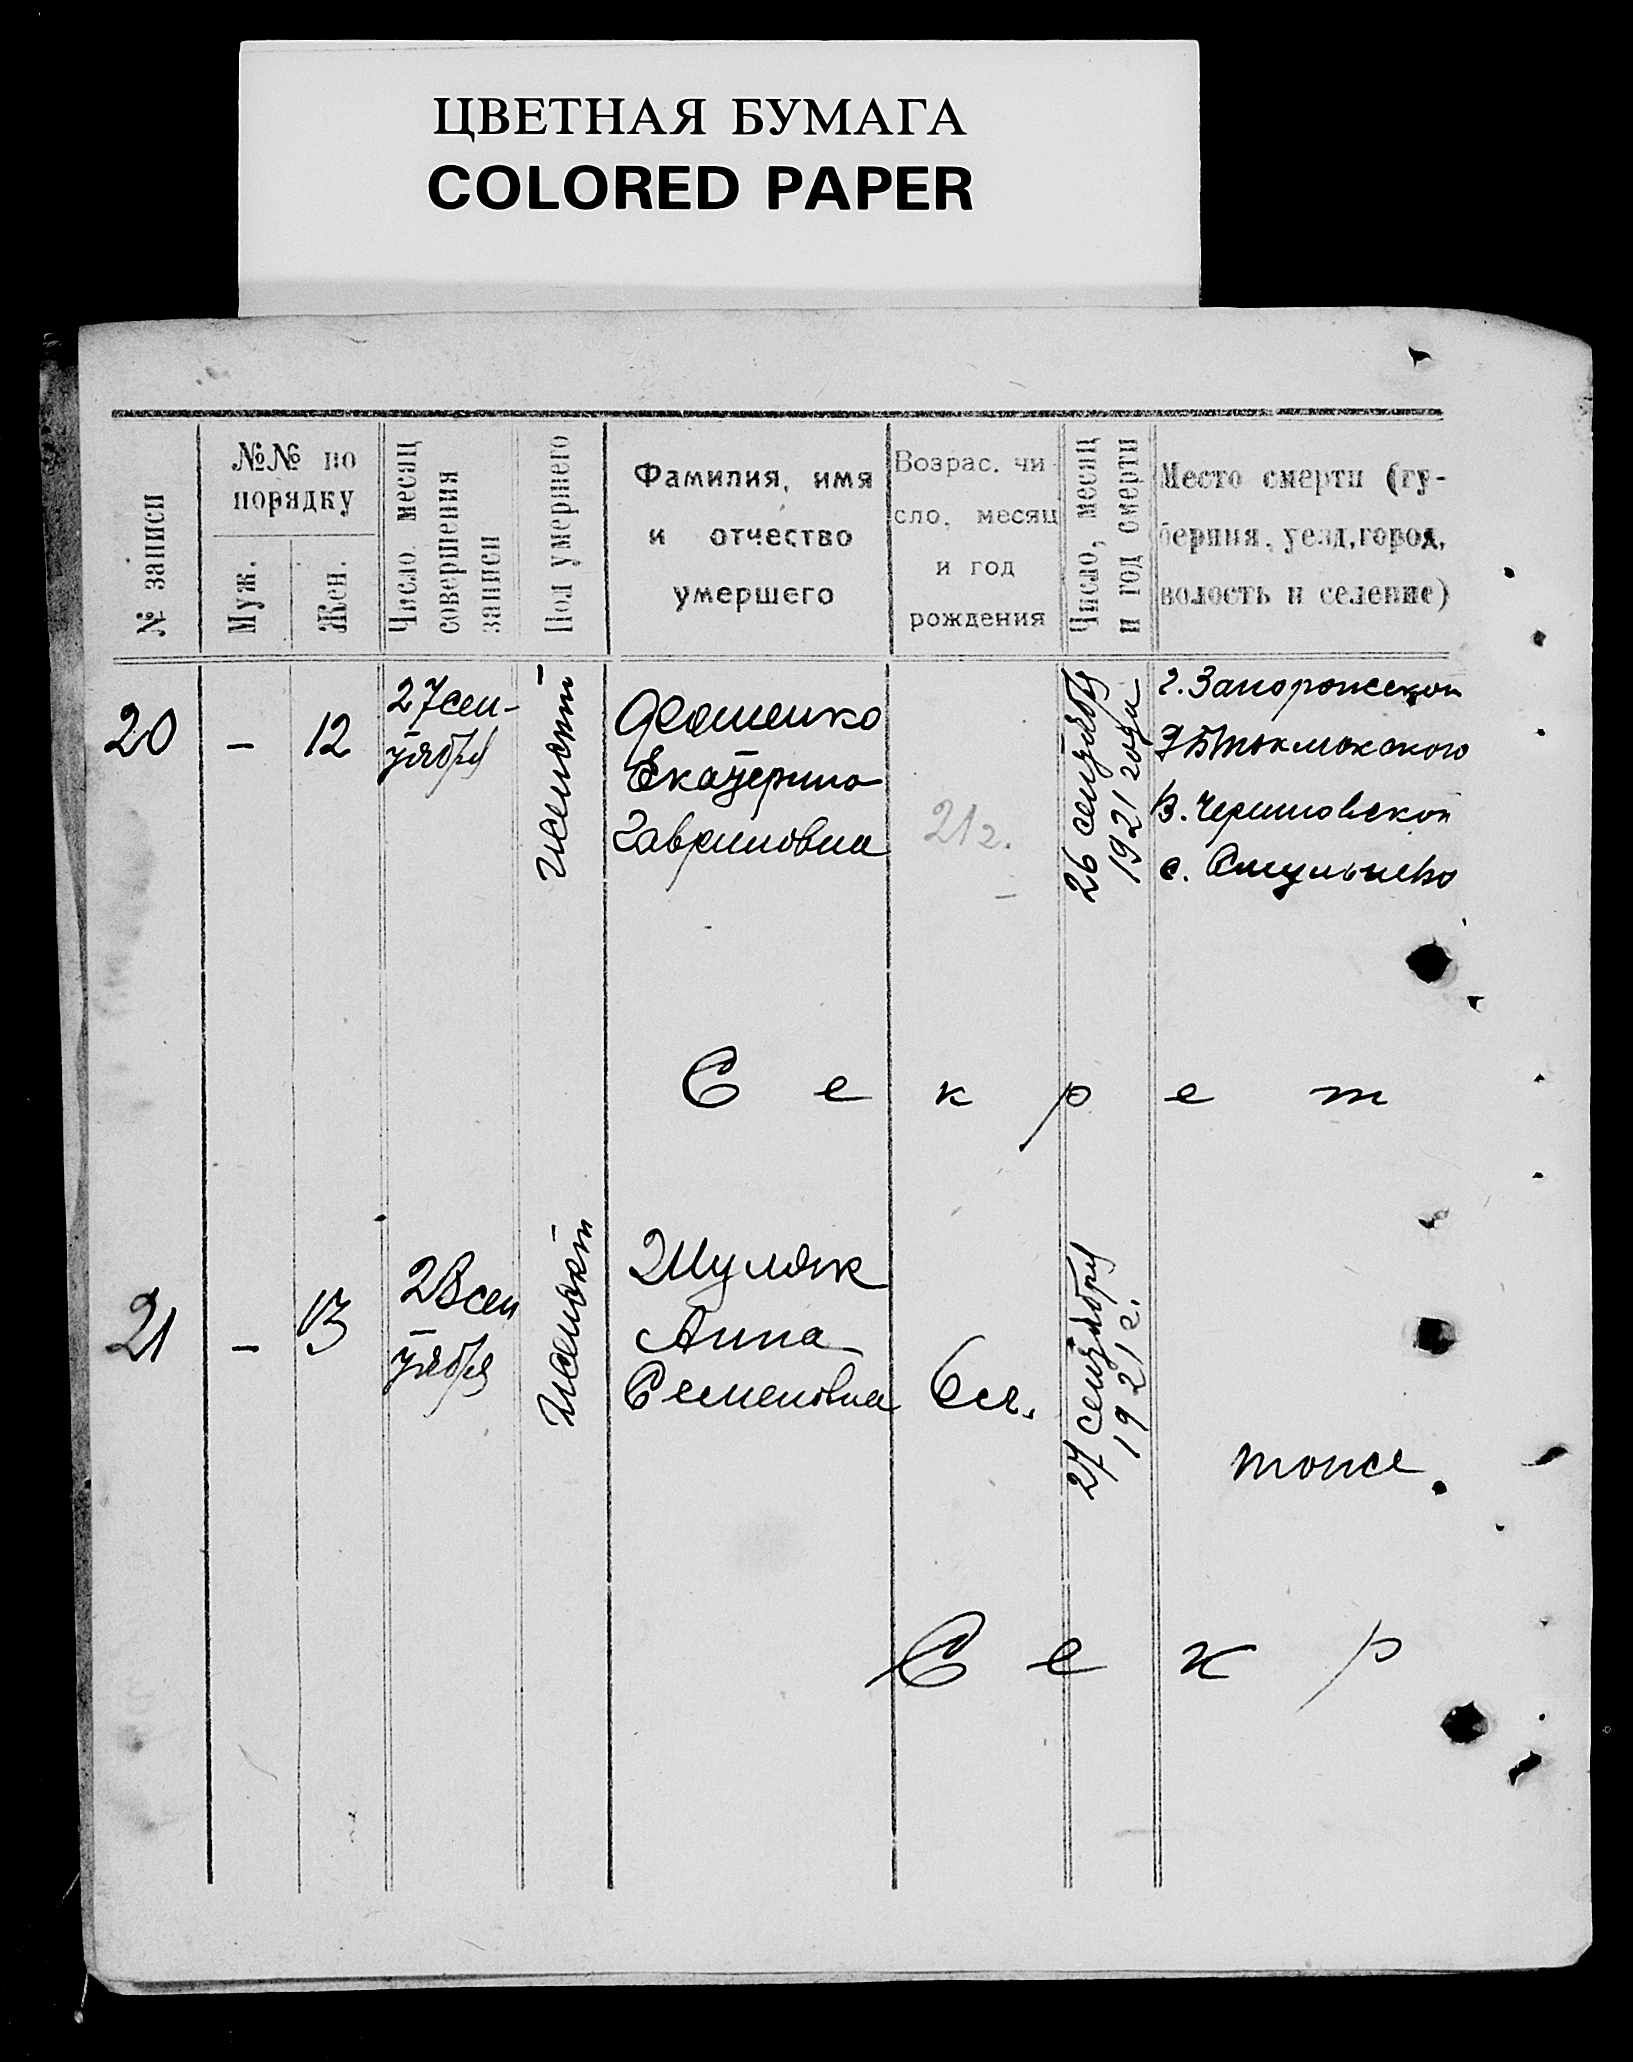 ЦВЕТНАЯ БУМАГА
COLORED PAPER
№ записи
№№ по
порядку
Муж.
Жен.
Число месяц
совершения
записи
Пол умершего
Фамилия, имя
и отчество
умершего
Возрас. чи
сло, месяц
и год
рождения
Число, месяц
и год смерти
Место смерти (гу-
берния, уезд, город,
волость и селение)
20
–
12
27 сен-
тября
женский
Екатерина
Гавриловна
21 г.
26 сентября
1921 года
г. Запорожской
Б Токмакского
В. Черниговской
с.
С е к р е т
21
–
13
28 сен
тября
женский
Шуляк
Анна
Семеновна
27 сентября
1921 г.
тоже.
С е к р